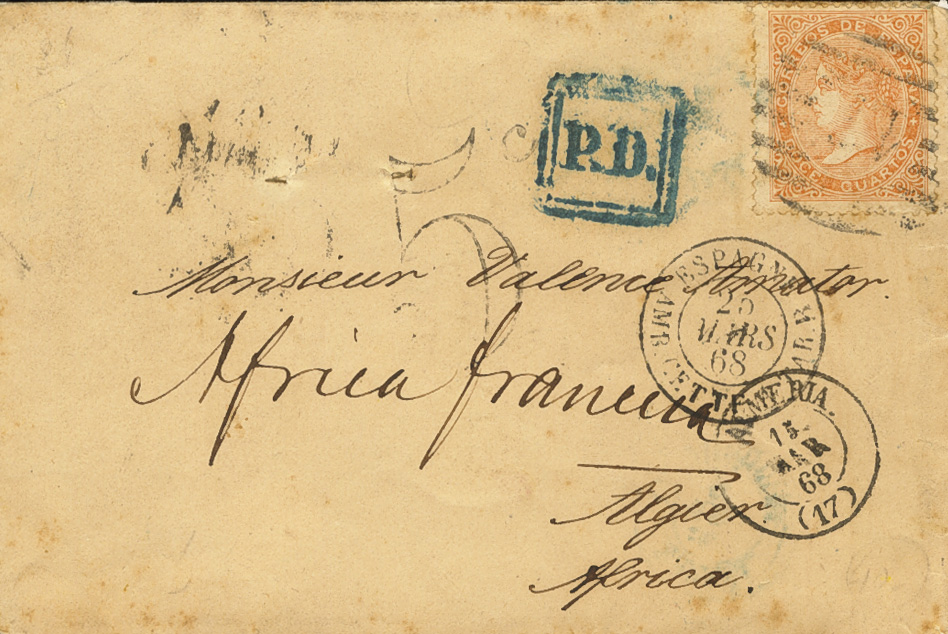 CORREOS DE ESPAÑA
DOCE CUARTOS
P.D.
5
Monsieur Valence Amator.
Africa francesa
ESPAGNE
25
MARS
68
AMB. CETTE
ALMERIA.
15
MAR
68
(17)
Algier
Africa.